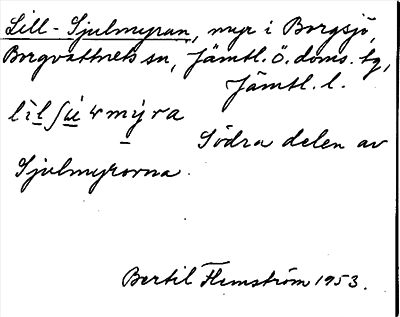 Lill-Sjulmyran, myr i Borgsjö,
Borgvattnets sn, Jämtl. ö. doms. tg,
Jämtl. l.
Södra delen av
Sjulmyrorna.
Bertil Flemström 1953.